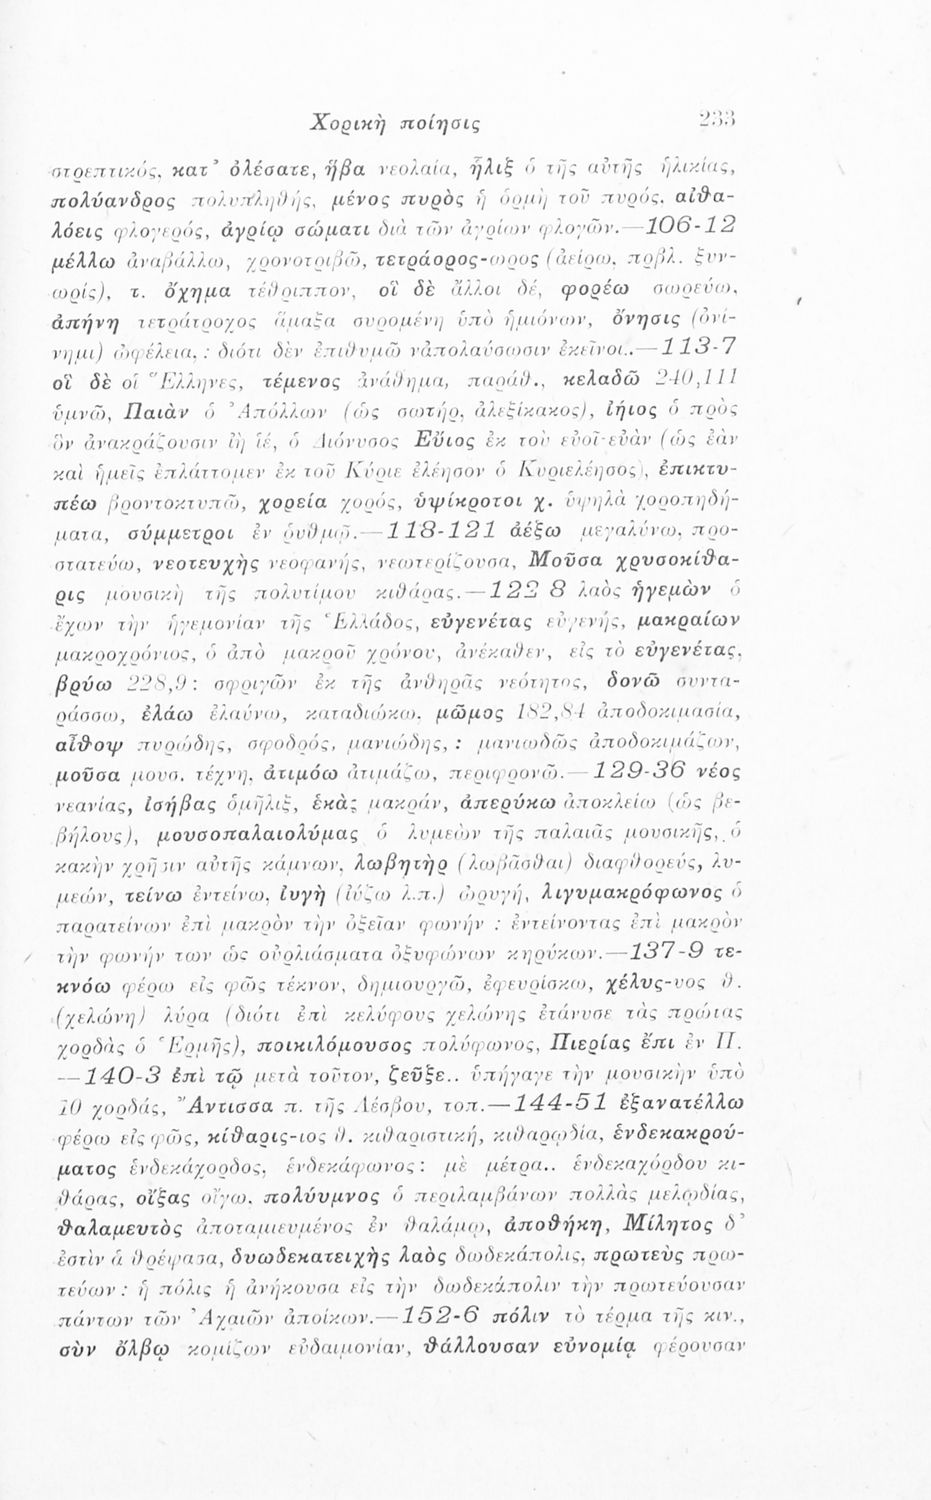 Χορικὴ ποίησις 233
στρεπτικός, κατ᾿ ὀλέσατε, ἥβα νεολαία, ἧλιξ ὁ τῆς αὐτῆς ἡλικίας,
πολύανδρος πολυπληθής, μένος πυρὸς ἡ ὁρμὴ τοῦ πυρός, αἰθα-
λόεις φλογερός, ἀγρίῳ σώματι διὰ τῶν ἀγρίων φλογῶν.—106-12
μέλλω ἀναβάλλω, χρονοτριβῶ, τετράορος-ωρος (ἀείρω, πρβλ. ξυν-
ωρίς), τ. ὄχημα τέθριππον, οἳ δὲ ἄλλοι δέ, φορέω σωρεύω,
ἀπήνη τετράτροχος ἅμαξα συρομένη ὑπὸ ἡμιόνων, ὄνησις (ὀνί-
νημι) ὠφέλεια, : διότι δὲν ἐπιθυμῶ ν᾿ἀπολαύσωσιν ἐκεῖνοι..—113-7
οἳ δὲ οἱ Ἕλληνες, τέμενος ἀνάθημα, παράθ., κελαδῶ 240,111
ὑμνῶ, Παιὰν ὁ Ἀπόλλων (ὡς σωτήρ, ἀλεξίκακος), ἰήιος ὁ πρὸς
ὃν ἀνακράζουσιν ἰὴ ἰέ, ὁ Διόνυσος Εὔιος ἐκ τοῦ εὐοῖ-εὐὰν (ὡς ἐὰν
καὶ ἡμεῖς ἐπλάττομεν ἐκ τοῦ Κύριε ἐλέησον ὁ Κυριελέησος), ἐπικτυ-
πέω βροντοκτυπῶ, χορεία χορός, ὑψίκροτοι χ. ὑψηλὰ χοροπηδή-
ματα, σύμμετροι ἐν ῥυθμῷ.—118-121 ἀέξω μεγαλύνω, προ-
στατεύω, νεοτευχὴς νεοφανής, νεωτερίζουσα, Μοῦσα χρυσοκίθα-
ρις μουσικὴ τῆς πολυτίμου κιθάρας.—122 8 λαὸς ἡγεμὼν ὁ
ἔχων τὴν ἡγεμονίαν τῆς Ἑλλάδος, εὐγενέτας εὐγενής, μακραίων
μακροχρόνιος, ὁ ἀπὸ μακροῦ χρόνου, ἀνέκαθεν, εἰς τὸ εὐγενέτας,
βρύω 228,9 : σφριγῶν ἐκ τῆς ἀνθηρᾶς νεότητος, δονῶ συντα-
ράσσω, ἐλάω ἐλαύνω, καταδιώκω, μῶμος 182,84 ἀποδοκιμασία,
αἶθοψ πυρώδης, σφοδρός, μανιώδης, : μανιωδῶς ἀποδοκιμάζων,
μοῦσα μουσ. τέχνη, ἀτιμόω ἀτιμάζω, περιφρονῶ.—129-36 νέος
νεανίας, ἰσήβας ὁμῆλιξ, ἑκὰς μακράν, ἀπερύκω ἀποκλείω (ὡς βε-
βήλους), μουσοπαλαιολύμας ὁ λυμεὼν τῆς παλαιᾶς μουσικῆς, ὁ
κακὴν χρῆσιν αὐτῆς κάμνων, λωβητὴρ (λωβᾶσθαι) διαφθορεύς, λυ-
μεών, τείνω ἐντείνω, ἰυγὴ (ἰύζω λ.π.) ὠρυγή, λιγυμακρόφωνος ὁ
παρατείνων ἐπὶ μακρὸν τὴν ὀξεῖαν φωνήν : ἐντείνοντας ἐπὶ μακρὸν
τὴν φωνήν των ὡς οὐρλιάσματα ὀξυφώνων κηρύκων.—137-9 τε-
κνόω φέρω εἰς φῶς τέκνον, δημιουργῶ, ἐφευρίσκω, χέλυς-υος θ.
(χελώνη) λύρα (διότι ἐπὶ κελύφους χελώνης ἐτάνυσε τὰς πρώτας
χορδὰς ὁ Ἑρμῆς), ποικιλόμουσος πολύφωνος, Πιερίας ἔπι ἐν Π.
—140-3 ἐπὶ τῷ μετὰ τοῦτον, ζεῦξε.. ὑπήγαγε τὴν μουσικὴν ὑπὸ
10 χορδάς, Ἄντισσα π. τῆς Λέσβου, τοπ.—144-51 ἐξανατέλλω
φέρω εἰς φῶς, κίθαρις-ιος θ. κιθαριστική, κιθαρῳδία, ἑνδεκακρού-
ματος ἑνδεκάχορδος, ἑνδεκάφωνος : μὲ μέτρα.. ἑνδεκαχόρδου κι-
θάρας, οἴξας οἴγω, πολύυμνος ὁ περιλαμβάνων πολλὰς μελῳδίας,
θαλαμευτὸς ἀποταμιευμένος ἐν θαλάμῳ, ἀποθήκη, Μίλητος δ᾿
ἐστὶν ἁ θρέψασα, δυωδεκατειχὴς λαὸς δωδεκάπολις, πρωτεὺς πρω-
τεύων : ἡ πόλις ἡ ἀνήκουσα εἰς τὴν δωδεκάπολιν τὴν πρωτεύουσαν
πάντων τῶν Ἀχαιῶν ἀποίκων.—152-6 πόλιν τὸ τέρμα τῆς κιν.,
σὺν ὄλβῳ κομίζων εὐδαιμονίαν, θάλλουσαν εὐνομίᾳ φέρουσαν